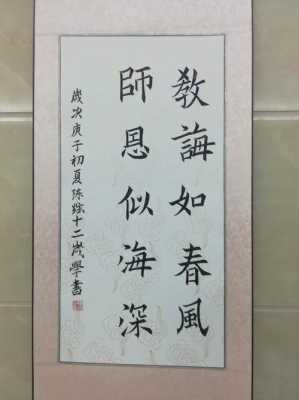 教誨如春風
師恩似海深
歲次庚子初夏陈炫十二歲學書